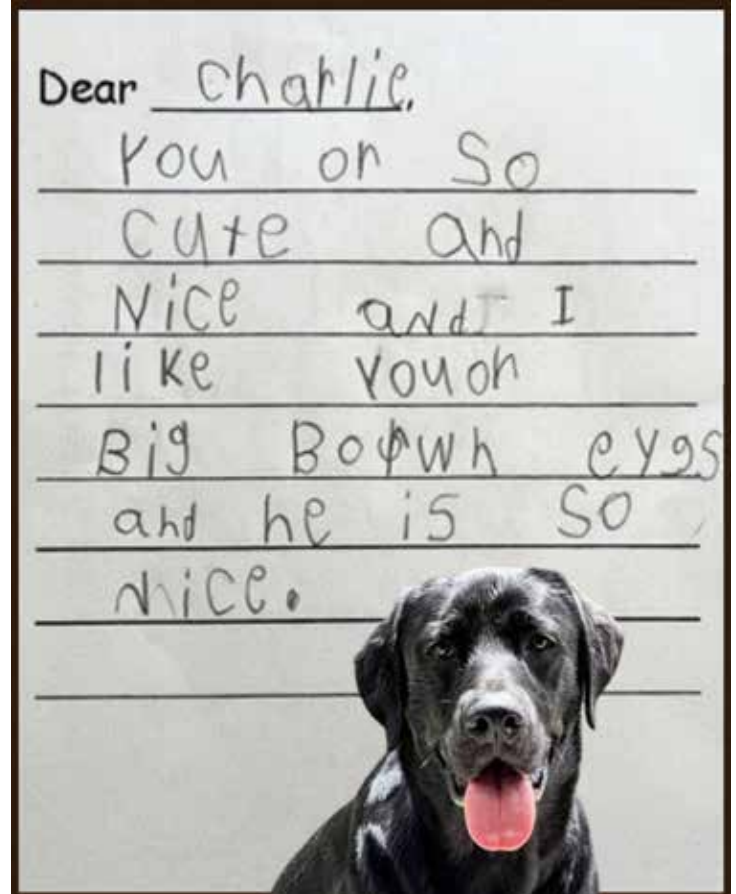 Dear Charlie,
You or so
cute and
Nice and I
like youor
Big Bopwn eygs
and he is so
nice.